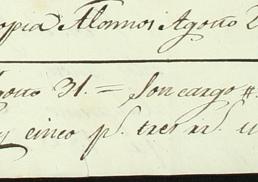 opia Alonnos Agosto 2
gosto 31. = Son cargo #.
y cinco ps. tres rs. u